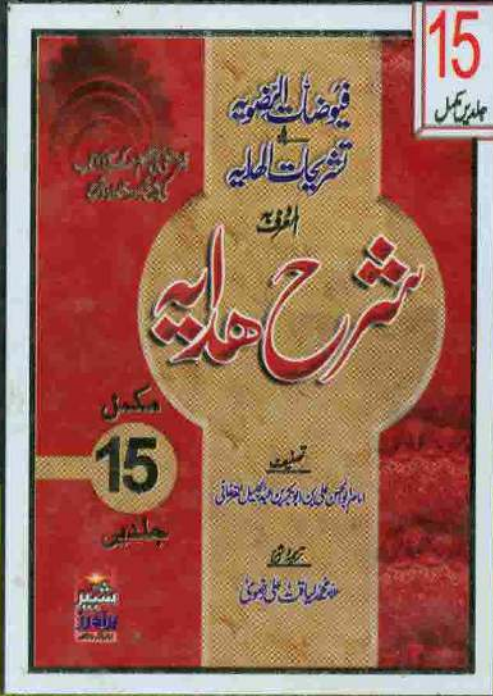 15
جلدیں مکمل
فیوضات الرضویہ
فی
تشریحات الہدایہ
المعروف بہ
شرح ھدایہ
مکمل
15
جلدیں
تصنیف
امام ابوالحسن علی بن ابوبکر بن عبدالجلیل الفرغانی
علامہ محمد لیاقت علی رضوی
شبیر
برادرز